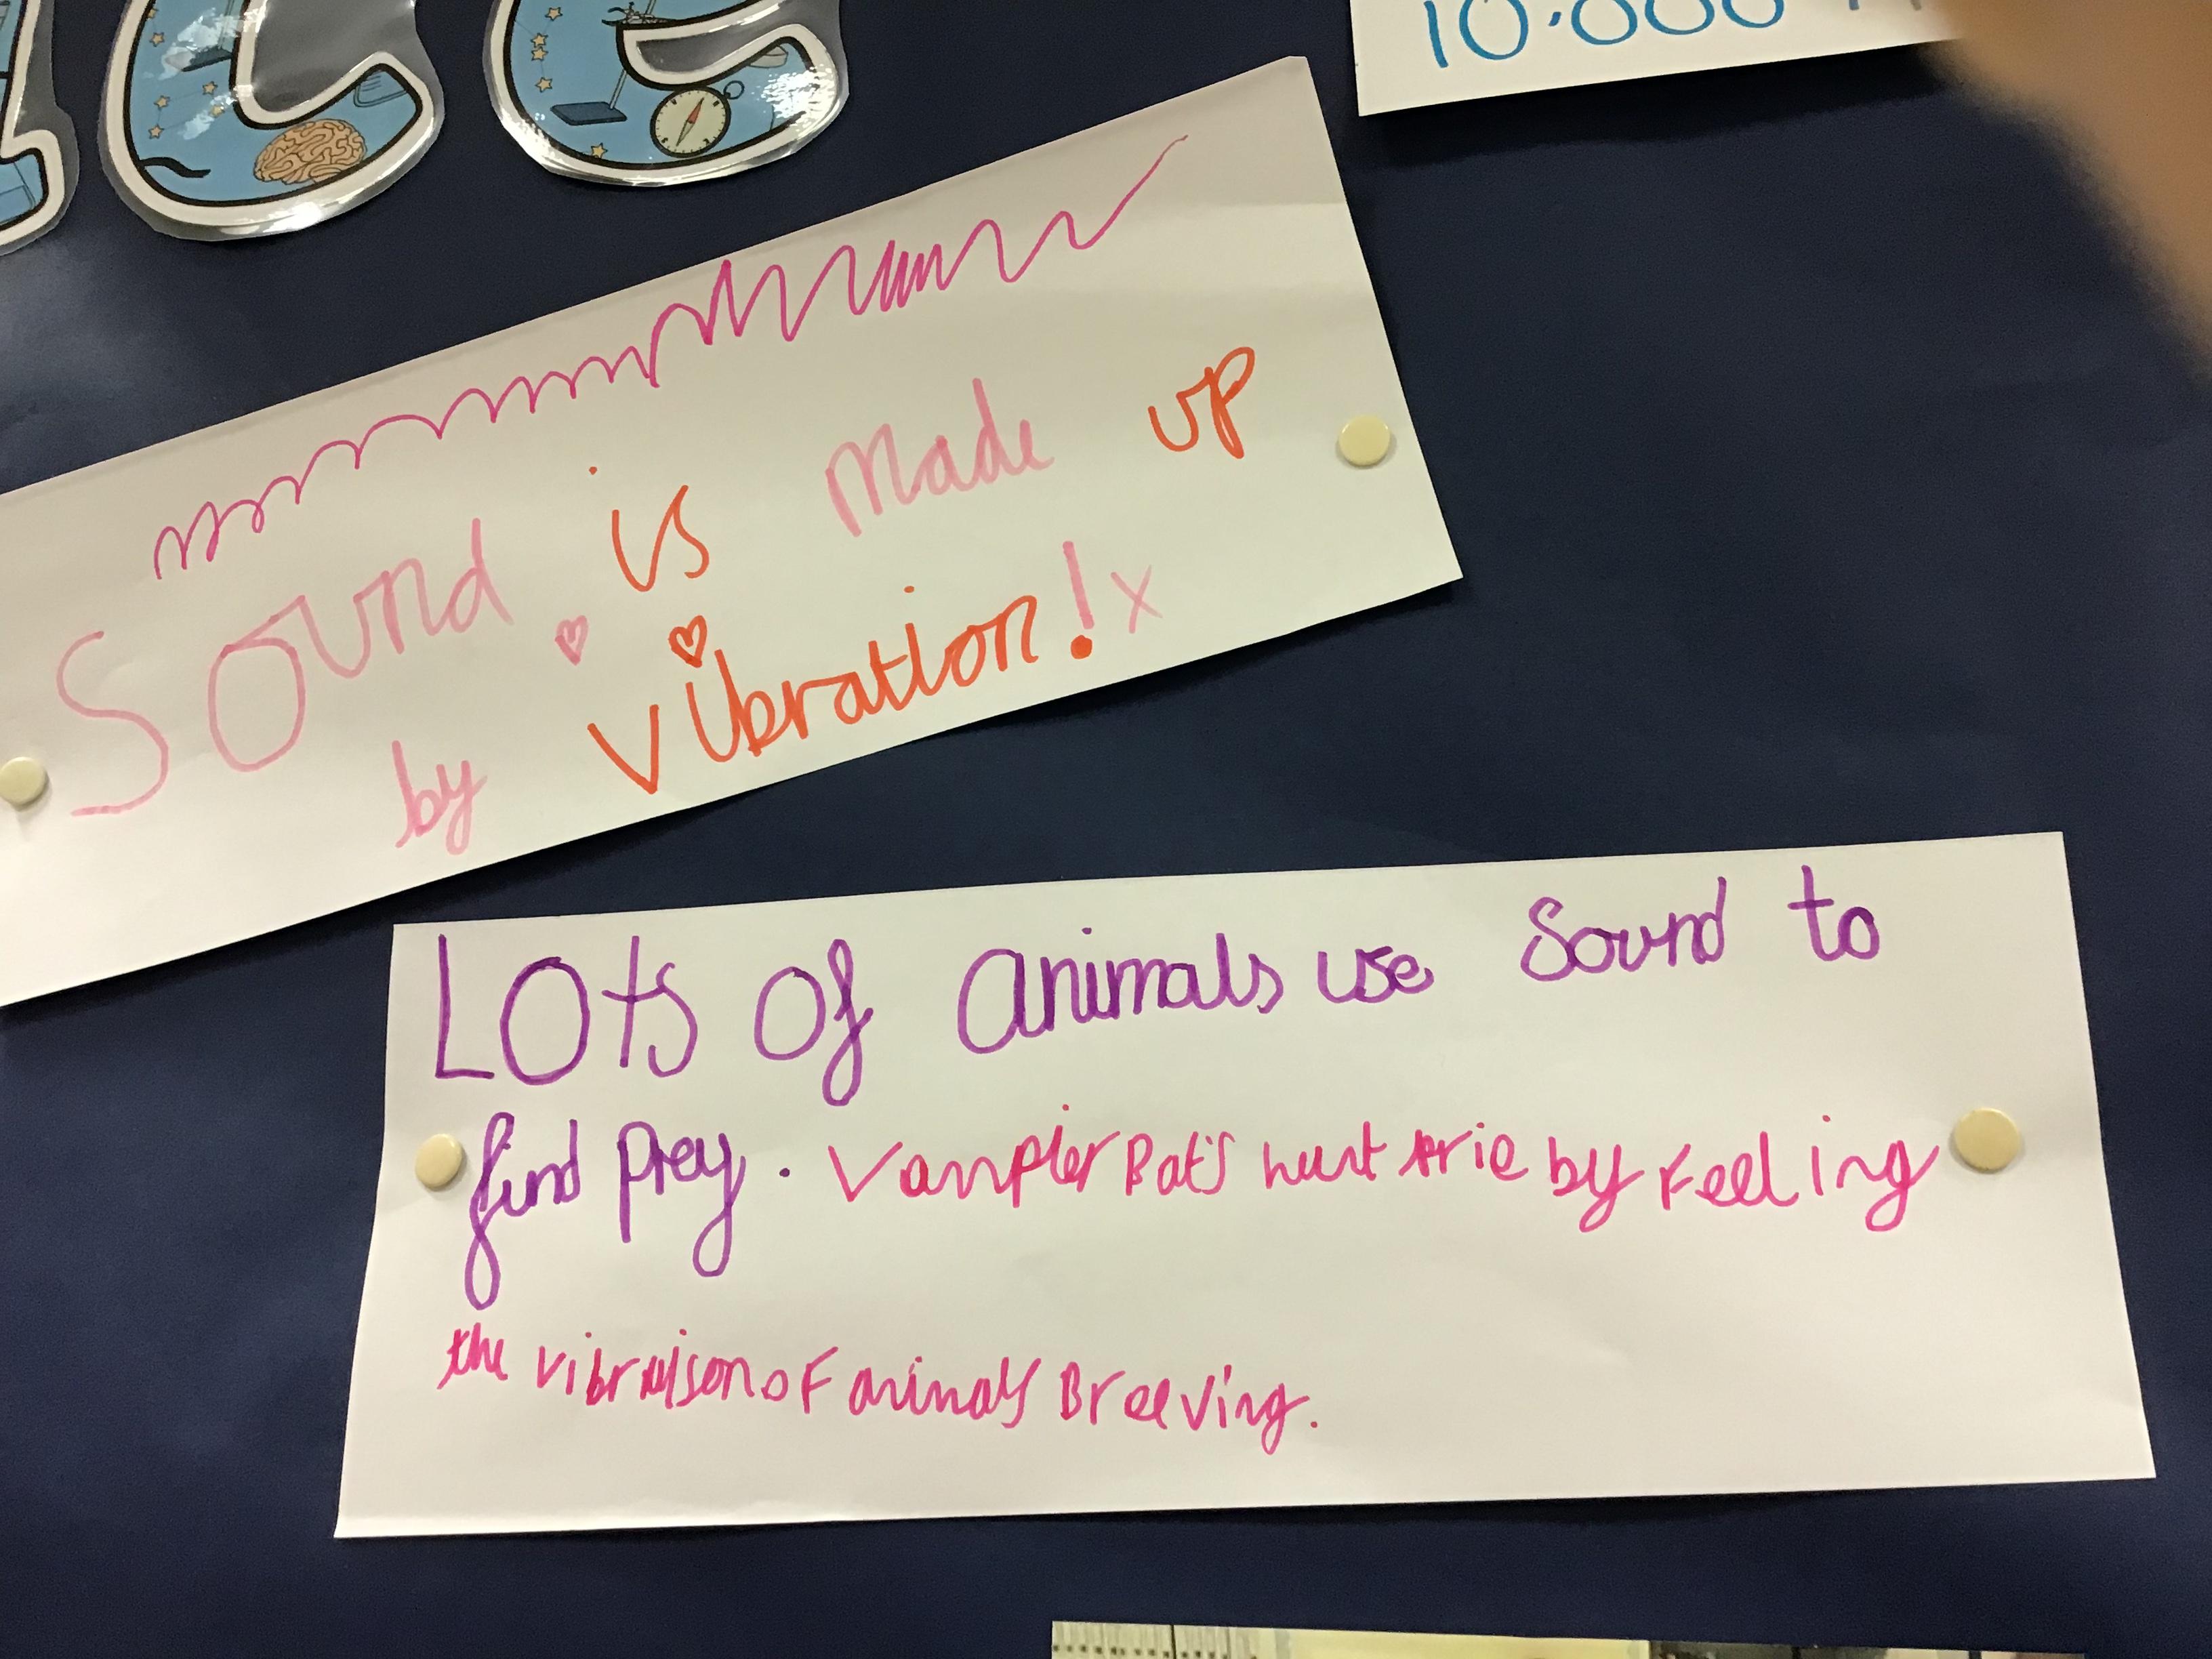 ce
10.000
Sound is made up
by vibration! x
Lots of animals use Sound to
find prey. Vampier Bat's hunt by Feeling
the of animals Breeving.